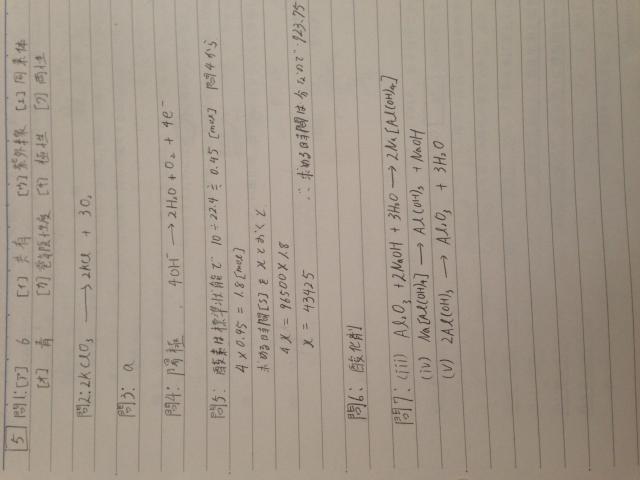 5 問1:[ア] 6 [イ] 共有 [ウ] 紫外線 [エ] 同素体
[オ] 青 [カ] 電気陰性度 [キ] 極性 [ク] 両性
問2:2KClO₃ → 2KCl + 3O₂
問3: a
問4: 陽極 . 4OH⁻ → 2H₂O + O₂ + 4e⁻
問5: 酸素は標準状態で 10÷22.4≒0.45 [mol] 問4から
4×0.45 = 1.8 [mol]
求める時間[s]をxとおくと
4x = 96500×1.8
x = 43425 ∴ 求める時間は分なので 723.75
問6: 酸化剤
問7: (iii) Al₂O₃ + 2NaOH + 3H₂O → 2Na[Al(OH)₄]
(iv) Na[Al(OH)₄] → Al(OH)₃ + NaOH
(V) 2Al(OH)₃ → Al₂O₃ + 3H₂O